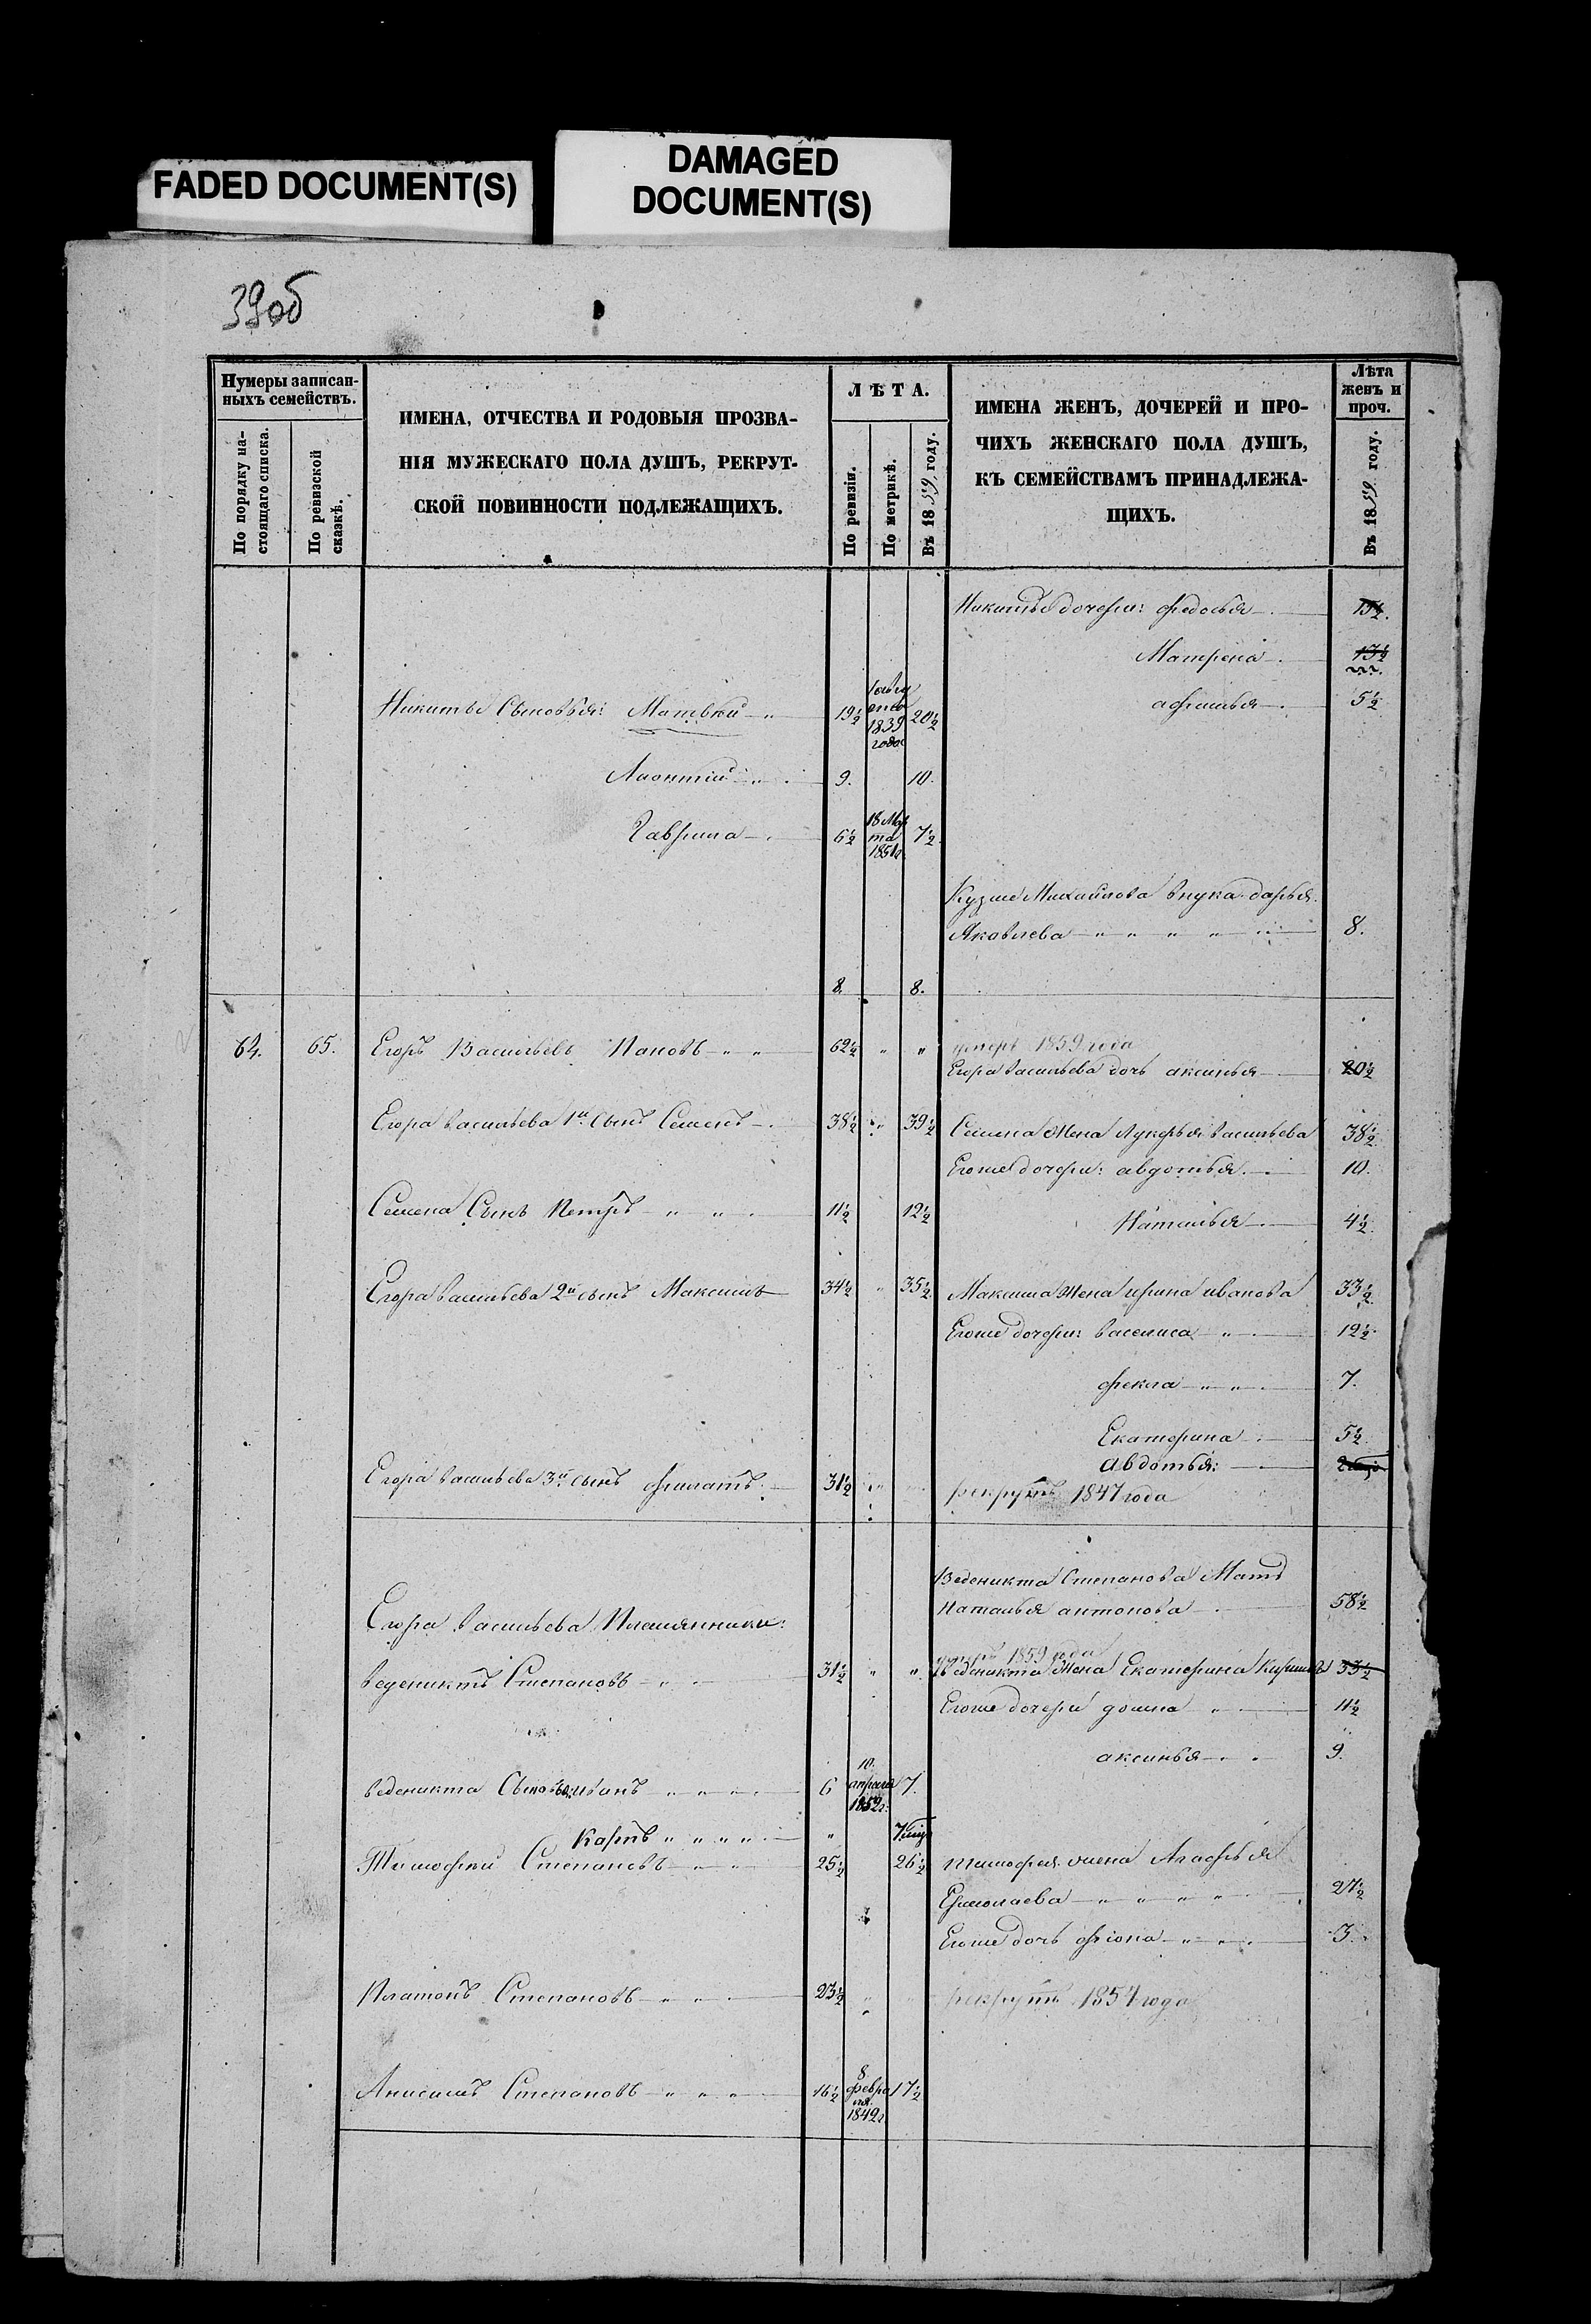 FADED DOCUMENT(S)
DAMAGED
DOCUMENT(S)
39об
Нумеры записан-
ныхъ семействъ.
По порядку на-
стоящаго списка.
По ревизской
сказкѣ.
ИМЕНА, ОТЧЕСТВА И РОДОВЫЯ ПРОЗВА-
НІЯ МУЖЕСКАГО ПОЛА ДУШЪ, РЕКРУТ-
СКОЙ ПОВИННОСТИ ПОДЛЕЖАЩИХЪ.
ЛѢТА.
По ревизіи.
По метрикѣ.
Въ 1859 году.
ИМЕНА ЖЕНЪ, ДОЧЕРЕЙ И ПРО-
ЧИХЪ ЖЕНСКАГО ПОЛА ДУШЪ,
КЪ СЕМЕЙСТВАМЪ ПРИНАДЛЕЖА-
ЩИХЪ.
Лѣта
женъ и
проч.
Въ 1859 году.
Никиты дочери: федосья
Матрена 13½
Никиты Сыновья: Матвѣй 19½ 1839 года 20½ 5½
Лионтій 9. 10.
Гаврила 6½ 18 Мар
та 1851г. 7½
Кузмы Михайлова внука дарья
Яковлева 8.
8. 8.
64. 65. Егоръ Васильевъ Пановъ 62½ " " умеръ 1859 года
Егора васильева дочь аксинья 20½
Егора васильева 1й Сынъ Семенъ 38½ " 39½ Семена Жена Лукерья васильева 38½
Егоже дочери: авдотья 10.
Семена Сынъ Петръ 11½ 12½ Наталья 4½
Егора васильева 2й сынъ Максимъ 34½ " 35½ Максима Жена ирина иванова 33½
Егоже дочери: василиса 12½
фекла 7.
Екатерина 5½
Авдотья:
Егора васильева 3й сынъ филатъ 31½ " рекрутъ 1847 года
Веденикта Степанова Мать
Наталья антонова 58½
Егора васильева Племянники:
веденикта Степановъ 31½ " " 1859 года
Веденикта Жена Екатерина 33½
Егоже дочери домна 11½
аксинья 9.
веденикта Сыновья: иванъ 6 10.
апреля 1852г. 7.
Карпъ "
Тимофей Степановъ 25½ 26½ тимофея жена Агафья
Ермолаева 27½
Егоже дочь фіона 3.
Платонъ Степановъ 23½ " рекрутъ 1854 года
Анисимъ Степановъ 16½ 8
февра
ля
1842г. 17½